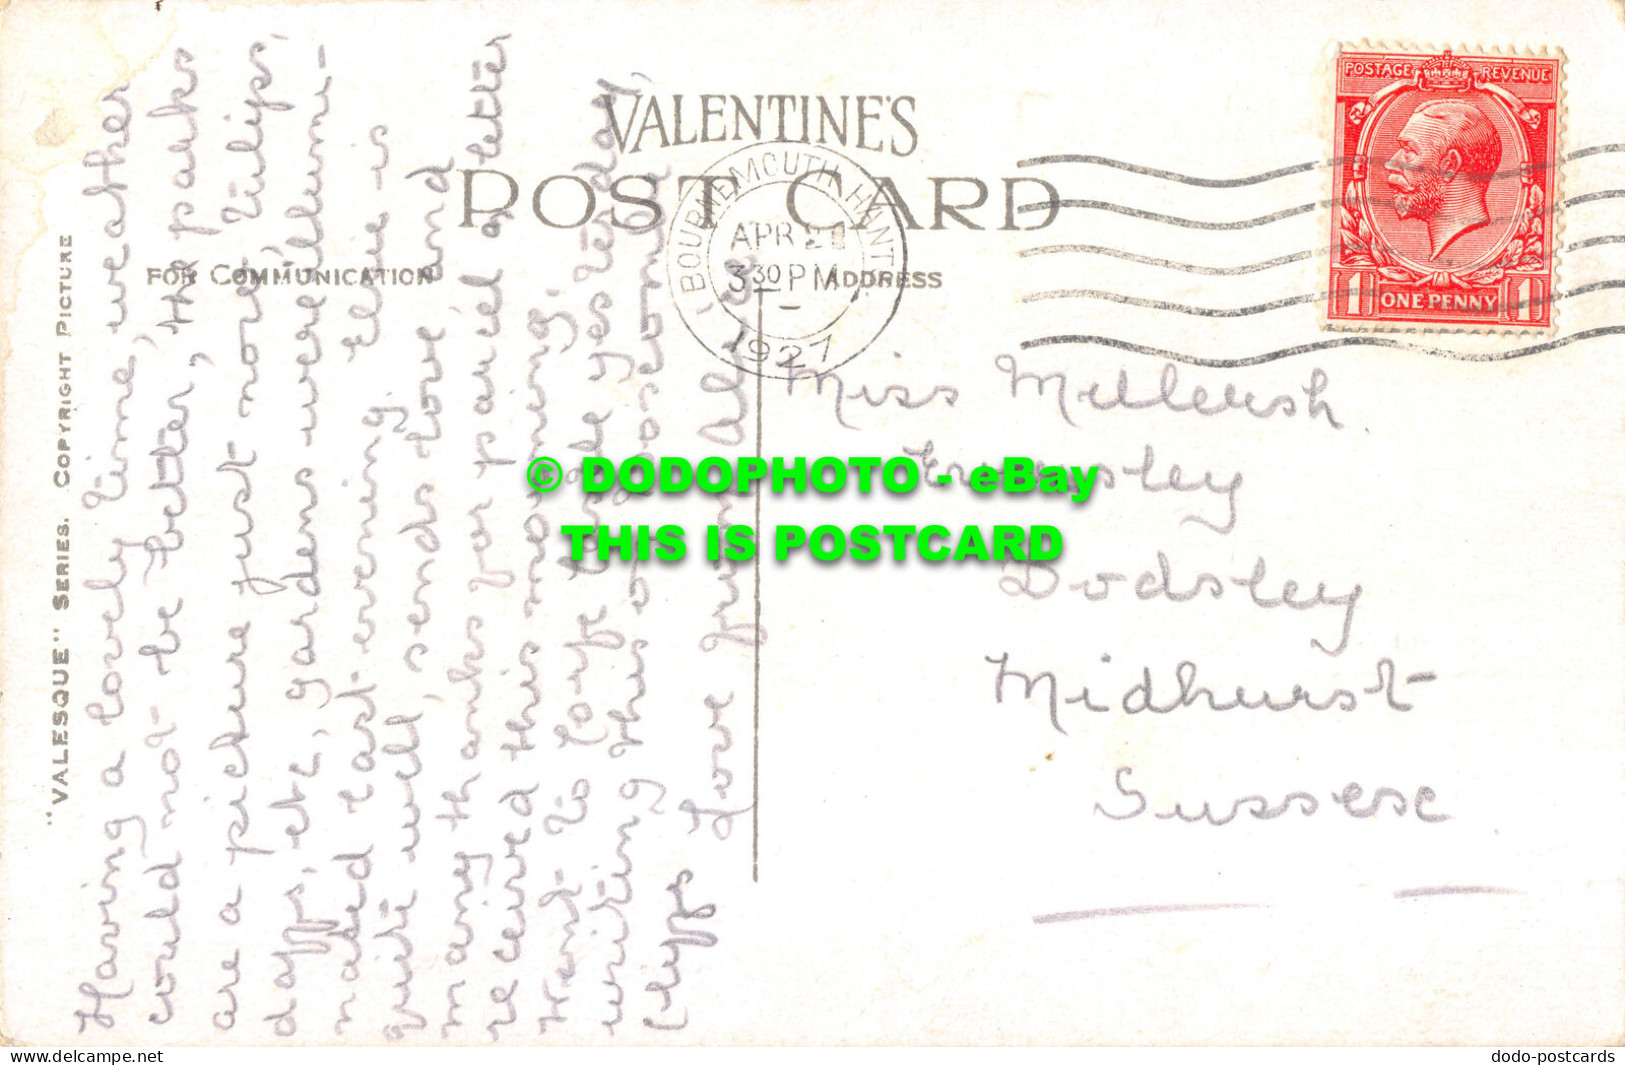 "VALESQUE" SERIES. COPYRIGHT PICTURE
VALENTINE'S
POST CARD
FOR COMMUNICATION
ADDRESS
BOURNEMOUTH HANTS
APR 2
3 30 PM
1927
POSTAGE REVENUE
1 ONE PENNY 1
Having a lovely time, weather
could not be better, the parks
are a picture just now, tulips,
daffs, etc, gardens were illumi-
nated last evening. Elsie is
quite well, sends love and
many thanks for parcel & letter
received this morning.
Went to Corfe Castle yesterday,
writing this on Boscombe
Clyffs Love from
Miss Mellersh
Dodsley
Midhurst
Sussex
© DODOPHOTO - eBay
THIS IS POSTCARD
www.delcampe.net
dodo-postcards